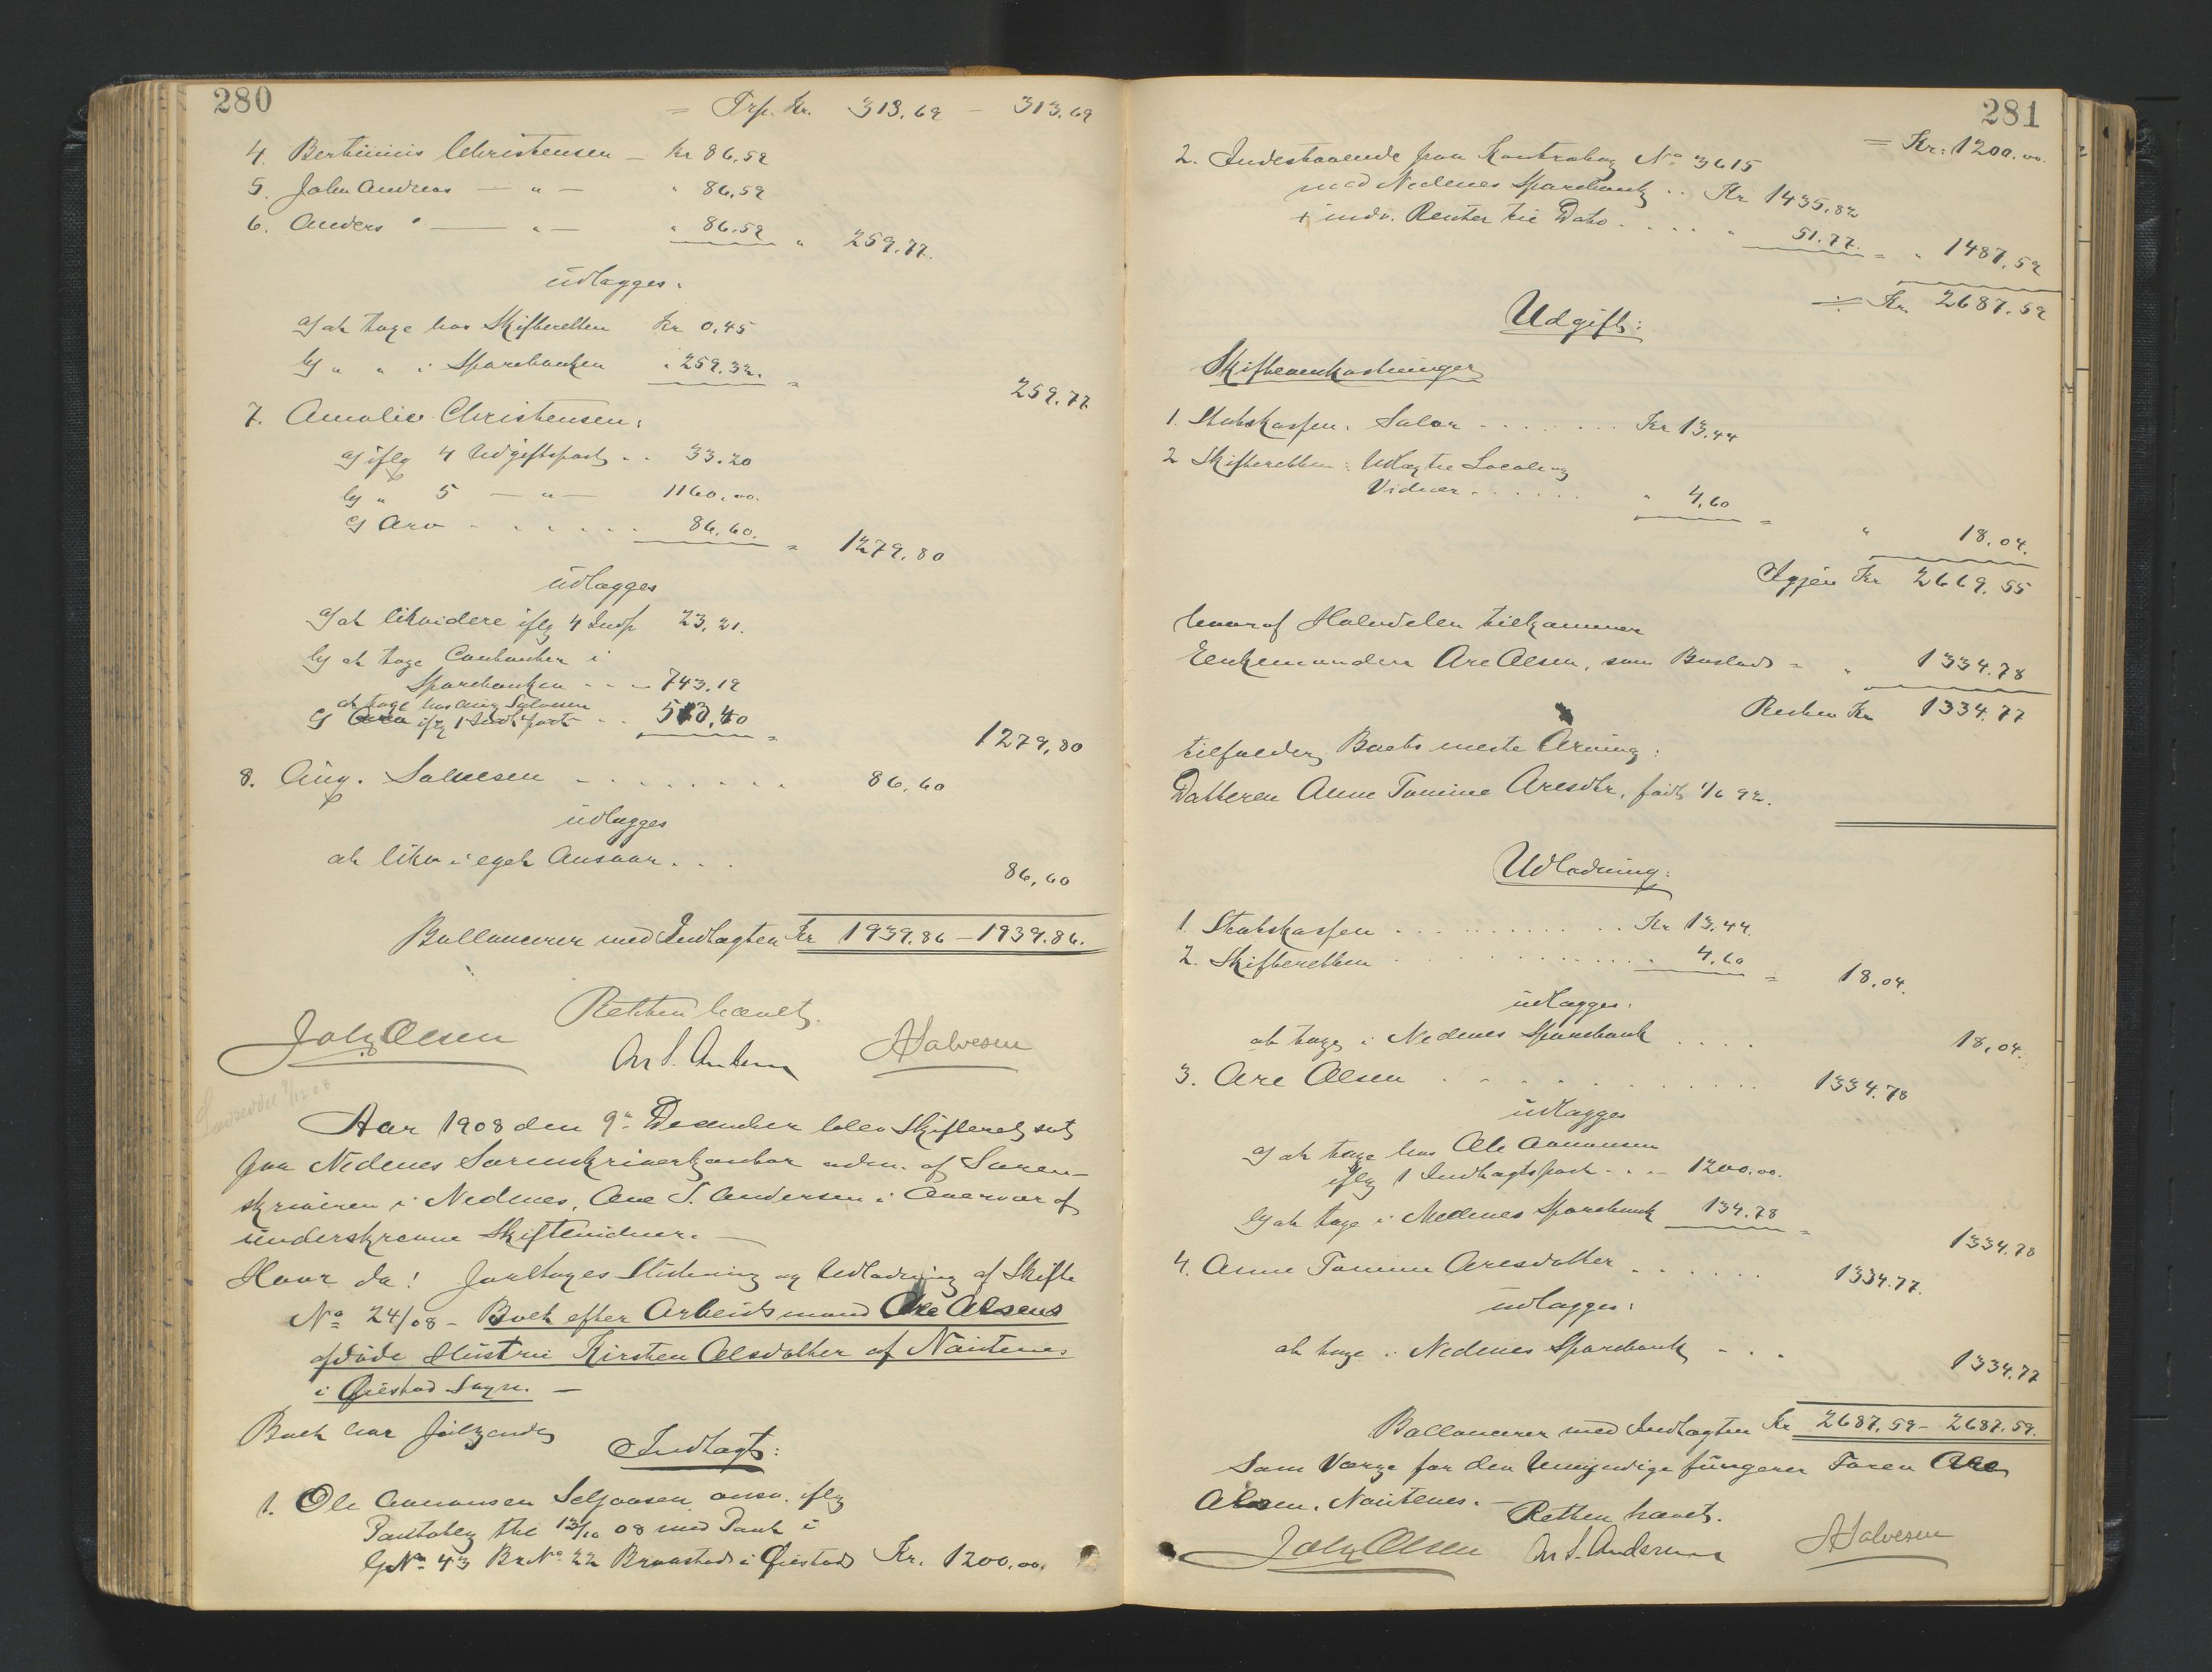 280
= Trp. Kr. 313,69 – 313,69
4. Bertinius Christensen – Kr 86,59
5. John Andreas — " — " 86,59
6. Anders " — " — " 86,59 " 259.77.
udlægges:
a) at tage hos Skifteretten Kr 0,45
b) " " i Sparebanken " 259.32. =
259.77
7. Amalie Christensen:
a) iflg 4 Udgiftspost . . 33.20
b) " 5 — " — 1160.00.
c) Arv . . . . . . 86,60. = 1279.80
udlægges
a) at likvidere iflg 4 Indp 23,21.
b) at tage Contanter i
Sparebanken - - - 743.19
at tage hos Aug Salvesen
c) iflg 1 Indt post - . . 513,40 =
1279,80
8. Aug. Salvesen - . . . . . . . 86,60
udlægges
at likv i eget Ansvar. . .
86,60
Ballancerer med Indtægten Kr 1939.86 – 1939.86.
Retten hævet.
Joh Olsen Ar S. Andersen ASalvesen
9/12 08
Aar 1908 den 9de December blev Skifteret sat
paa Nedenes Sorenskriverkontor adm. af Soren-
skriveren i Nedenes, Ave S. Andersen i Overvær af
underskrevne Skiftevidner. —
Hvor da! foretoges Slutning og Udlodning af Skifte
No 24/08 – Boet efter Arbeidsmand Are Olsens
afdøde Hustru Kirsten Olsdatter af Nautenes
i Øiestad Sogn. —
Boet har følgende
Indtægt:
1. Ole Aanonsen Seljaasen ansv. iflg
Pantobl thl 13/10 08 med Pant i
GNo 43 BrNo 22 Braastad i Øiestad Kr. 1200.00.
281
= Kr. 1200.00.
2. Indestaaende paa Kontrabog No 3615
med Nedenes Sparebank . . Kr 1435,82
+ indv. Renter til Dato . . . . . " 51.77. = " 1487,59
÷ Kr. 2687.59
Udgift:
Skifteomkostninger
1. Statskassen: Salær - . . . . . . Kr 13.44
2 Skifteretten: Udlagte Locale og
Vidner. . . . . . " 4,60 = " 18.04.
Igjen Kr 2669.55
hvoraf Halvdelen tilkommer
Enkemanden Are Olsen, som Boslod = " 1334.78
Resten Kr 1334.77
tilfalder Boets eneste Arving:
Datteren Anne Tomine Aresdtr, født 1/6 92.
Udlodning:
1. Statskassen . . . . . . . . . . . . Kr 13,44.
2. Skifteretten . . . . . . . . . . . . " 4,60 = 18,04.
udlægges:
at tage i Nedenes Sparebank . . . . 18,04.
3. Are Olsen . . . . . . . . . . . . 1334.78
udlægges
a) at tage hos Ole Aanonsen
iflg 1 Indtægtspost - . . - 1200.00.
b) at tage i Nedenes Sparebank 134.78 =
1334.78
4. Anne Tomine Aresdatter . . . . . . 1334.77.
udlægges:
at tage i Nedenes Sparebank - . . 1334.77
Ballancerer med Indtægten Kr 2687.59 – 2687.59.
Som Værge for den Umyndige fungerer Faren Are
Olsen, Nautenes. –
Retten hævet.
Joh Olsen Ar S. Andersen ASalvesen